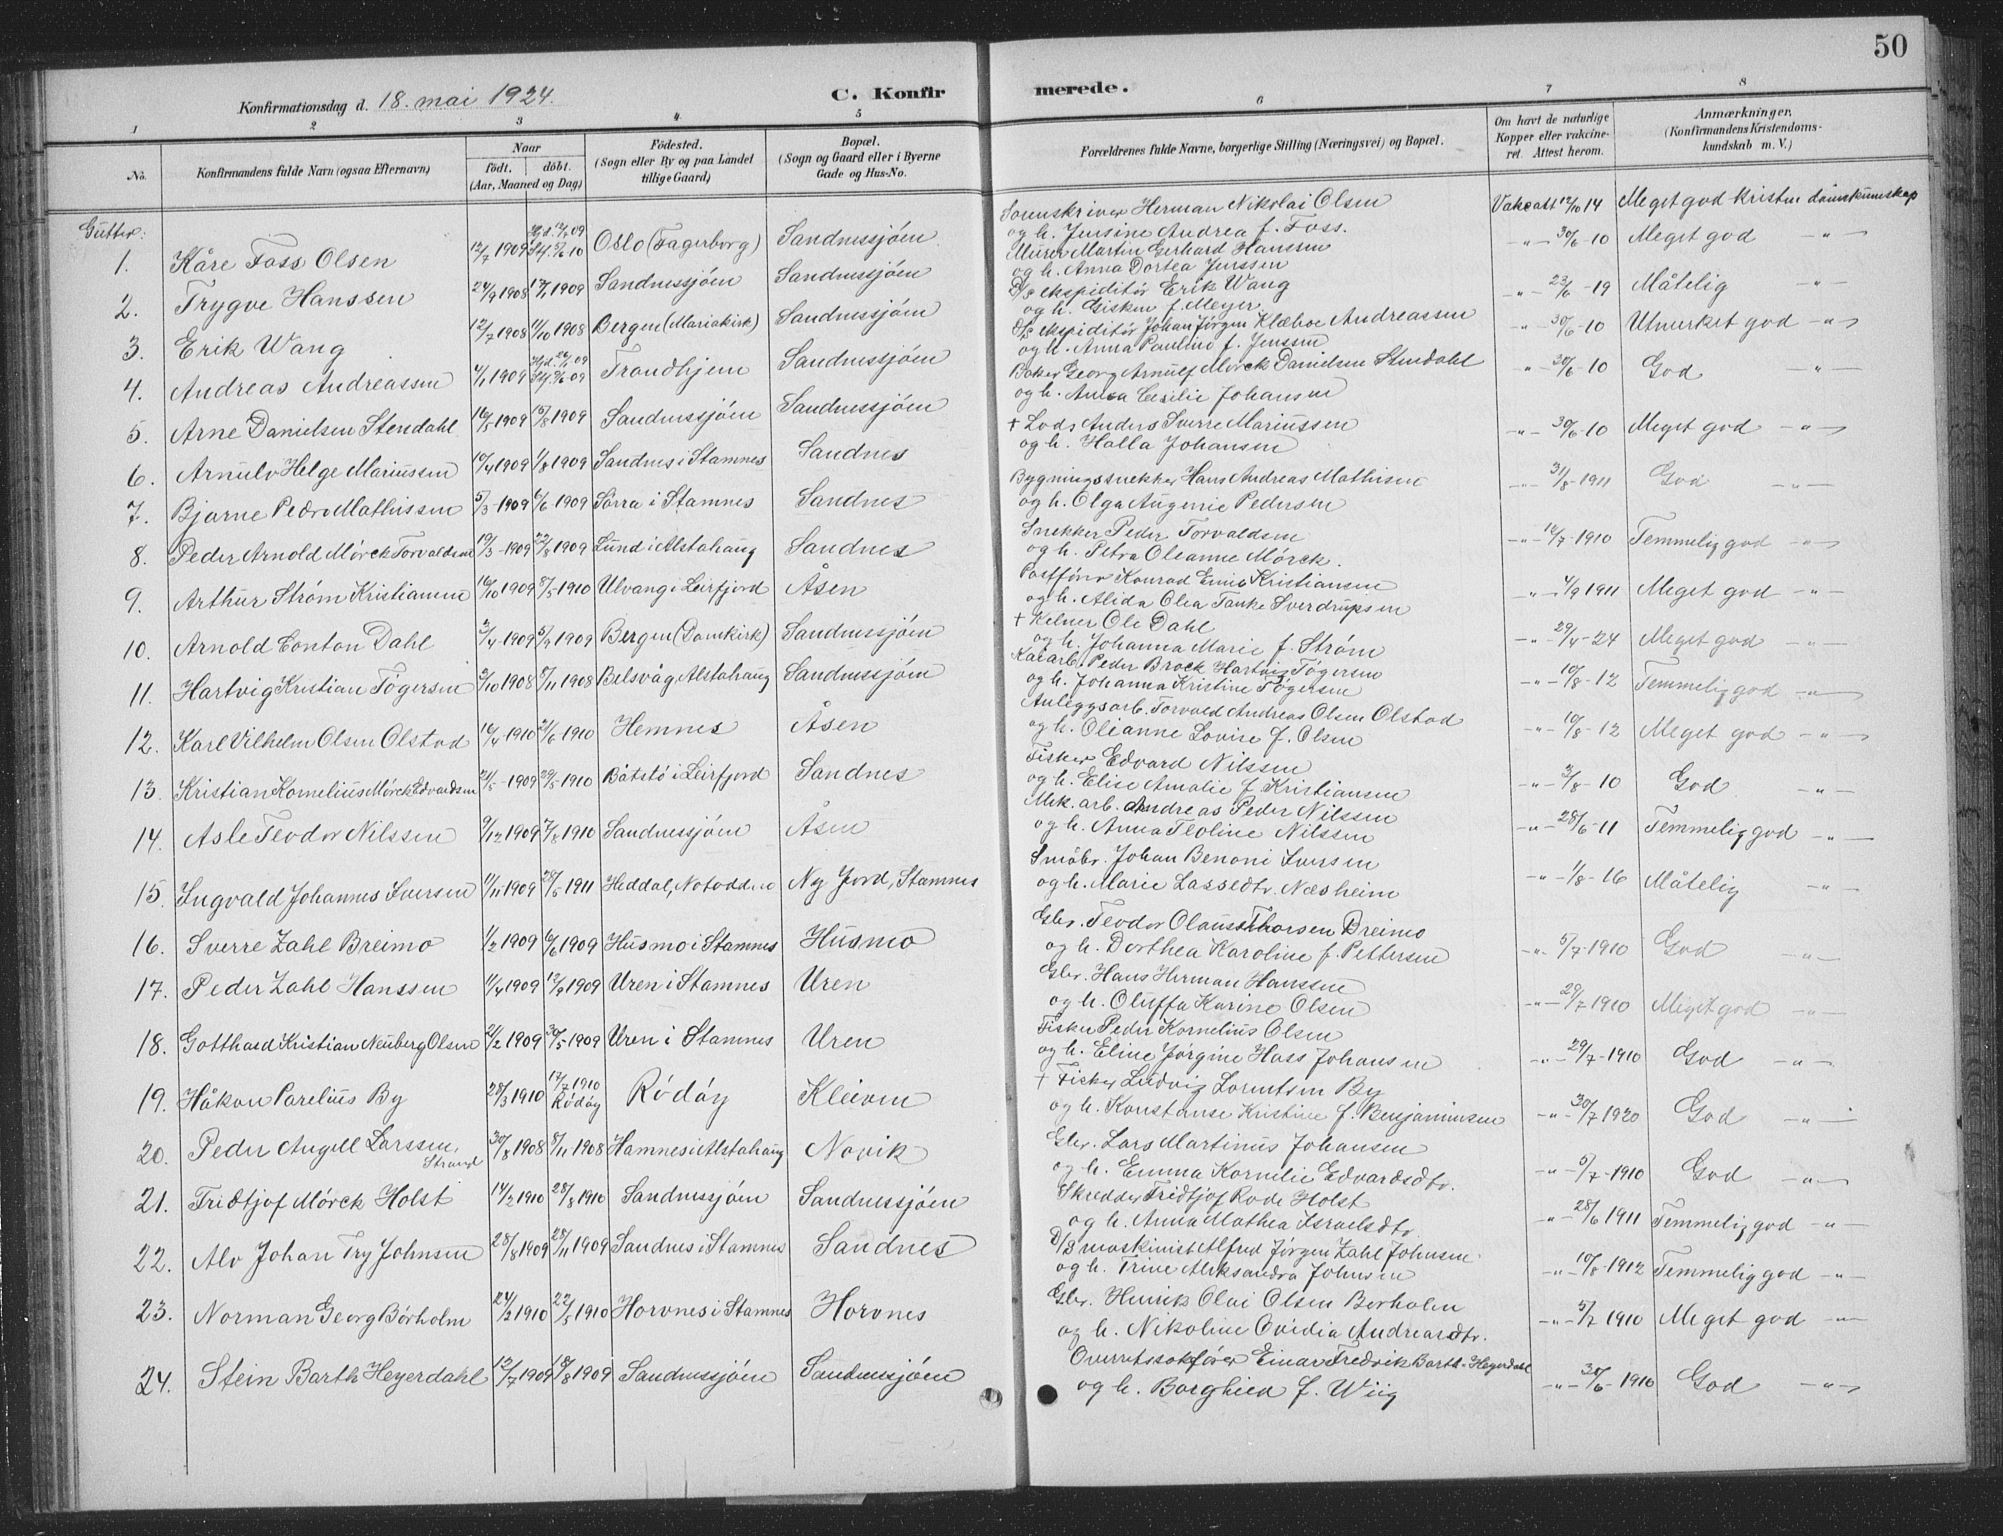 50
Konfirmationsdag d. 18. mai 1924.
C. Konfirmerede.
1 2 3 4 5 6 7 8
No.
Konfirmandens fulde Navn (ogsaa Efternavn)
Naar
født. døbt.
(Aar, Maaned og Dag)
Födested.
(Sogn eller By og paa Landet
tillige Gaard)
Bopæl.
(Sogn og Gaard eller i Byerne
Gade og Hus-No.
Forældrenes fulde Navne, borgerlige Stilling (Næringsvei) og Bopæl.
Om havt de naturlige
Kopper eller vakcine-
ret. Attest herom.
Anmærkninger.
(Konfirmandens Kristendoms-
kundskab m. V.)
Gutter:
1. Kåre Foss Olsen 12/7 1909 Oslo (Fagerborg) Sandnessjøen
Sorenskriver Herman Nikolai Olsen
og h. Jensine Andrea f. Foss.
Vakc att 12/10 14 Meget god kristendomskunskap
2. Trygve Hanssen 24/9 1908 1909 Sandnessjøen Sandnessjøen
Murer Martin Gerhard Hanssen
og h. Anna Dortea Jenssen
-"- 30/6-10 Meget god -"-
3. Erik Wang 12/7 1908 11/10 1908 Bergen (Mariakirk) Sandnessjøen
D/s ekspeditør Erik Wang
og h. Gisken f. Meyer.
-"- 23/6-19 Måtelig -"-
4. Andreas Andreassen 1909 Trondhjem Sandnessjøen
D/s ekspeditør Johan Jørgen Klæboe Andreassen
og h. Anna Pauline f. Jenssen
-"- 30/6-10 Utmerket god -"-
5. Arne Danielsen Stendahl 16/5 1909 15/8 1909 Sandnessjøen Sandnessjøen
Baker Georg Arnulf Mørck Danielsen Stendahl
og h. Anna Cecilie Johansen
-"- 30/6-10 God -"-
6. Arnulv Helge Mariussen 10/4 1909 1/8 1909 Sandnes i Stamnes Sandnes
+ Lods Anders Sverre Mariussen
og h. Halla Johansen
-"- 30/6-10 Meget god -"-
7. Bjarne Pedro Mathissen 5/3-1909 6/6 1909 Sørra i Stamnes Sandnes
Bygningssnekker Hans Andreas Mathisen
og h. Olga Augenie Pedersen
-"- 31/8-1911 God -"-
8. Peder Arnold Mørck Torvaldsen 19/3-1909 22/8 1909 Lund i Alstahaug Sandnes
Snekker Peder Torvaldsen
og h. Petra Oleanne Mørck.
-"- 12/7-1910 Temmelig god -"-
9. Arthur Strøm Kristiansen 16/10 1909 8/5 1910 Ulvang i Leirfjord Åsen
Postfører Konrad Emil Kristiansen
og h. Alida Olea Tanke Sverdrupsen
-"- 4/9 1911 Meget god -"-
10. Arnold Conton Dahl 3/4 1909 5/9 1909 Bergen (Domkirk) Sandnessjøen
+ Kelner Ole Dahl
og h. Johanna Marie f. Strøm
-"- 29/4-24 Meget god -"-
11. Hartvig Kristian Tøgersen 3/10 1908 8/11 1908 Belsvåg, Alstahaug Sandnessjøen
Kaiarb. Peder Brock Hartvig Tøgersen
og h. Johanna Kristine Tøgersen
-"- 10/8-12 Temmelig god -"-
12. Karl Vilhelm Olsen Olstad 16/4 1910 21/6 1910 Hemnes Åsen
Anleggsarb. Torvald Andreas Olsen Olstad
og h. Olianne Lovise f. Olsen
-"- 10/8-12 Meget god -"-
13. Kristian Kornelius Mørck Edvardsen 21/5-1909 29/5 1910 Båtslø i Leirfjord Sandnes
Fisker Edvard Nilssen
og h. Elise Amalie f. Kristiansen
-"- 3/8-10 God -"-
14. Asle Teodor Nilssen 9/12 1909 7/8 1910 Sandnessjøen Åsen
Mek. arb. Andreas Peder Nilssen
og h. Anna Teoline Nilssen
-"- 28/6-11 Temmelig god -"-
15. Ingvald Johannes Iversen 11/11 1909 28/5 1911 Heddal, Notodden Ny Jord, Stamnes
Småbr. Johan Benoni Iversen
og h. Marie Lassedtr. Næsheim
-"- 1/8-16 Måtelig -"-
16. Sverre Zahl Breimo 1/2 1909 6/6 1909 Husmo i Stamnes Husmo
Gbr. Teodor Olaus Thorsen Breimo
og h. Dorthea Karoline f. Pettersen
-"- 5/7-1910 God -"-
17. Peder Zahl Hanssen 11/4 1909 12/9 1909 Uren i Stamnes Uren
Gbr. Hans Herman Hanssen
og h. Oluffa Karine Olsen
-"- 29/7 1910 Meget god -"-
18. Gotthard Kristian Neuberg Olsen 21/2 1909 30/5 1909 Uren i Stamnes Uren
Fisker Peder Kornelius Olsen
og h. Eline Jørgine Hass Johansen
-"- 29/7-1910 God -"-
19. Håkon Parelius By 28/3 1910 17/7 1910 Rødøy Rødøy Kleiven
+ Fisker Ludvig Lorentsen By
og h. Konstanse Kristine f. Benjaminsen
-"- 30/7 1920 God -"-
20. Peder Angell Larssen, Strand 30/8 1908 8/11 1908 Hamnes i Alstahaug Novik
Gbr. Lars Martinus Johansen
og h. Emma Kornelie Edvardsdtr.
-"- 5/7-1910 God -"-
21. Fridtjof Mørck Holst 14/2 1910 28/8 1910 Sandnessjøen Sandnessjøen
Skredder Fridtjof Rode Holst
og h. Anna Mathea Israelsdtr.
-"- 28/6 1911 Temmelig god -"-
22. Alv Johan Try Johnsen 28/8 1909 28/11 1909 Sandnes i Stamnes Sandnes
D/s maskinist Alfred Jørgen Zahl Johnsen
og h. Trine Aleksandra Johnsen
-"- 10/8-1912 Temmelig god -"-
23. Norman Georg Børholm 24/2 1910 22/5 1910 Horvnes i Stamnes Horvnes
Gbr. Henrik Olai Olsen Borholm
og h. Nikoline Ovidia Andreasdtr.
-"- 5/7 1910 Meget god -"-
24. Stein Barth Heyerdahl 12/7 1909 18/8 1909 Sandnessjøen Sandnessjøen
Overretssakfører Einar Fredrik Barth-Heyerdahl
og h. Borghild f. Wiig
-"- 30/6-1910 God -"-